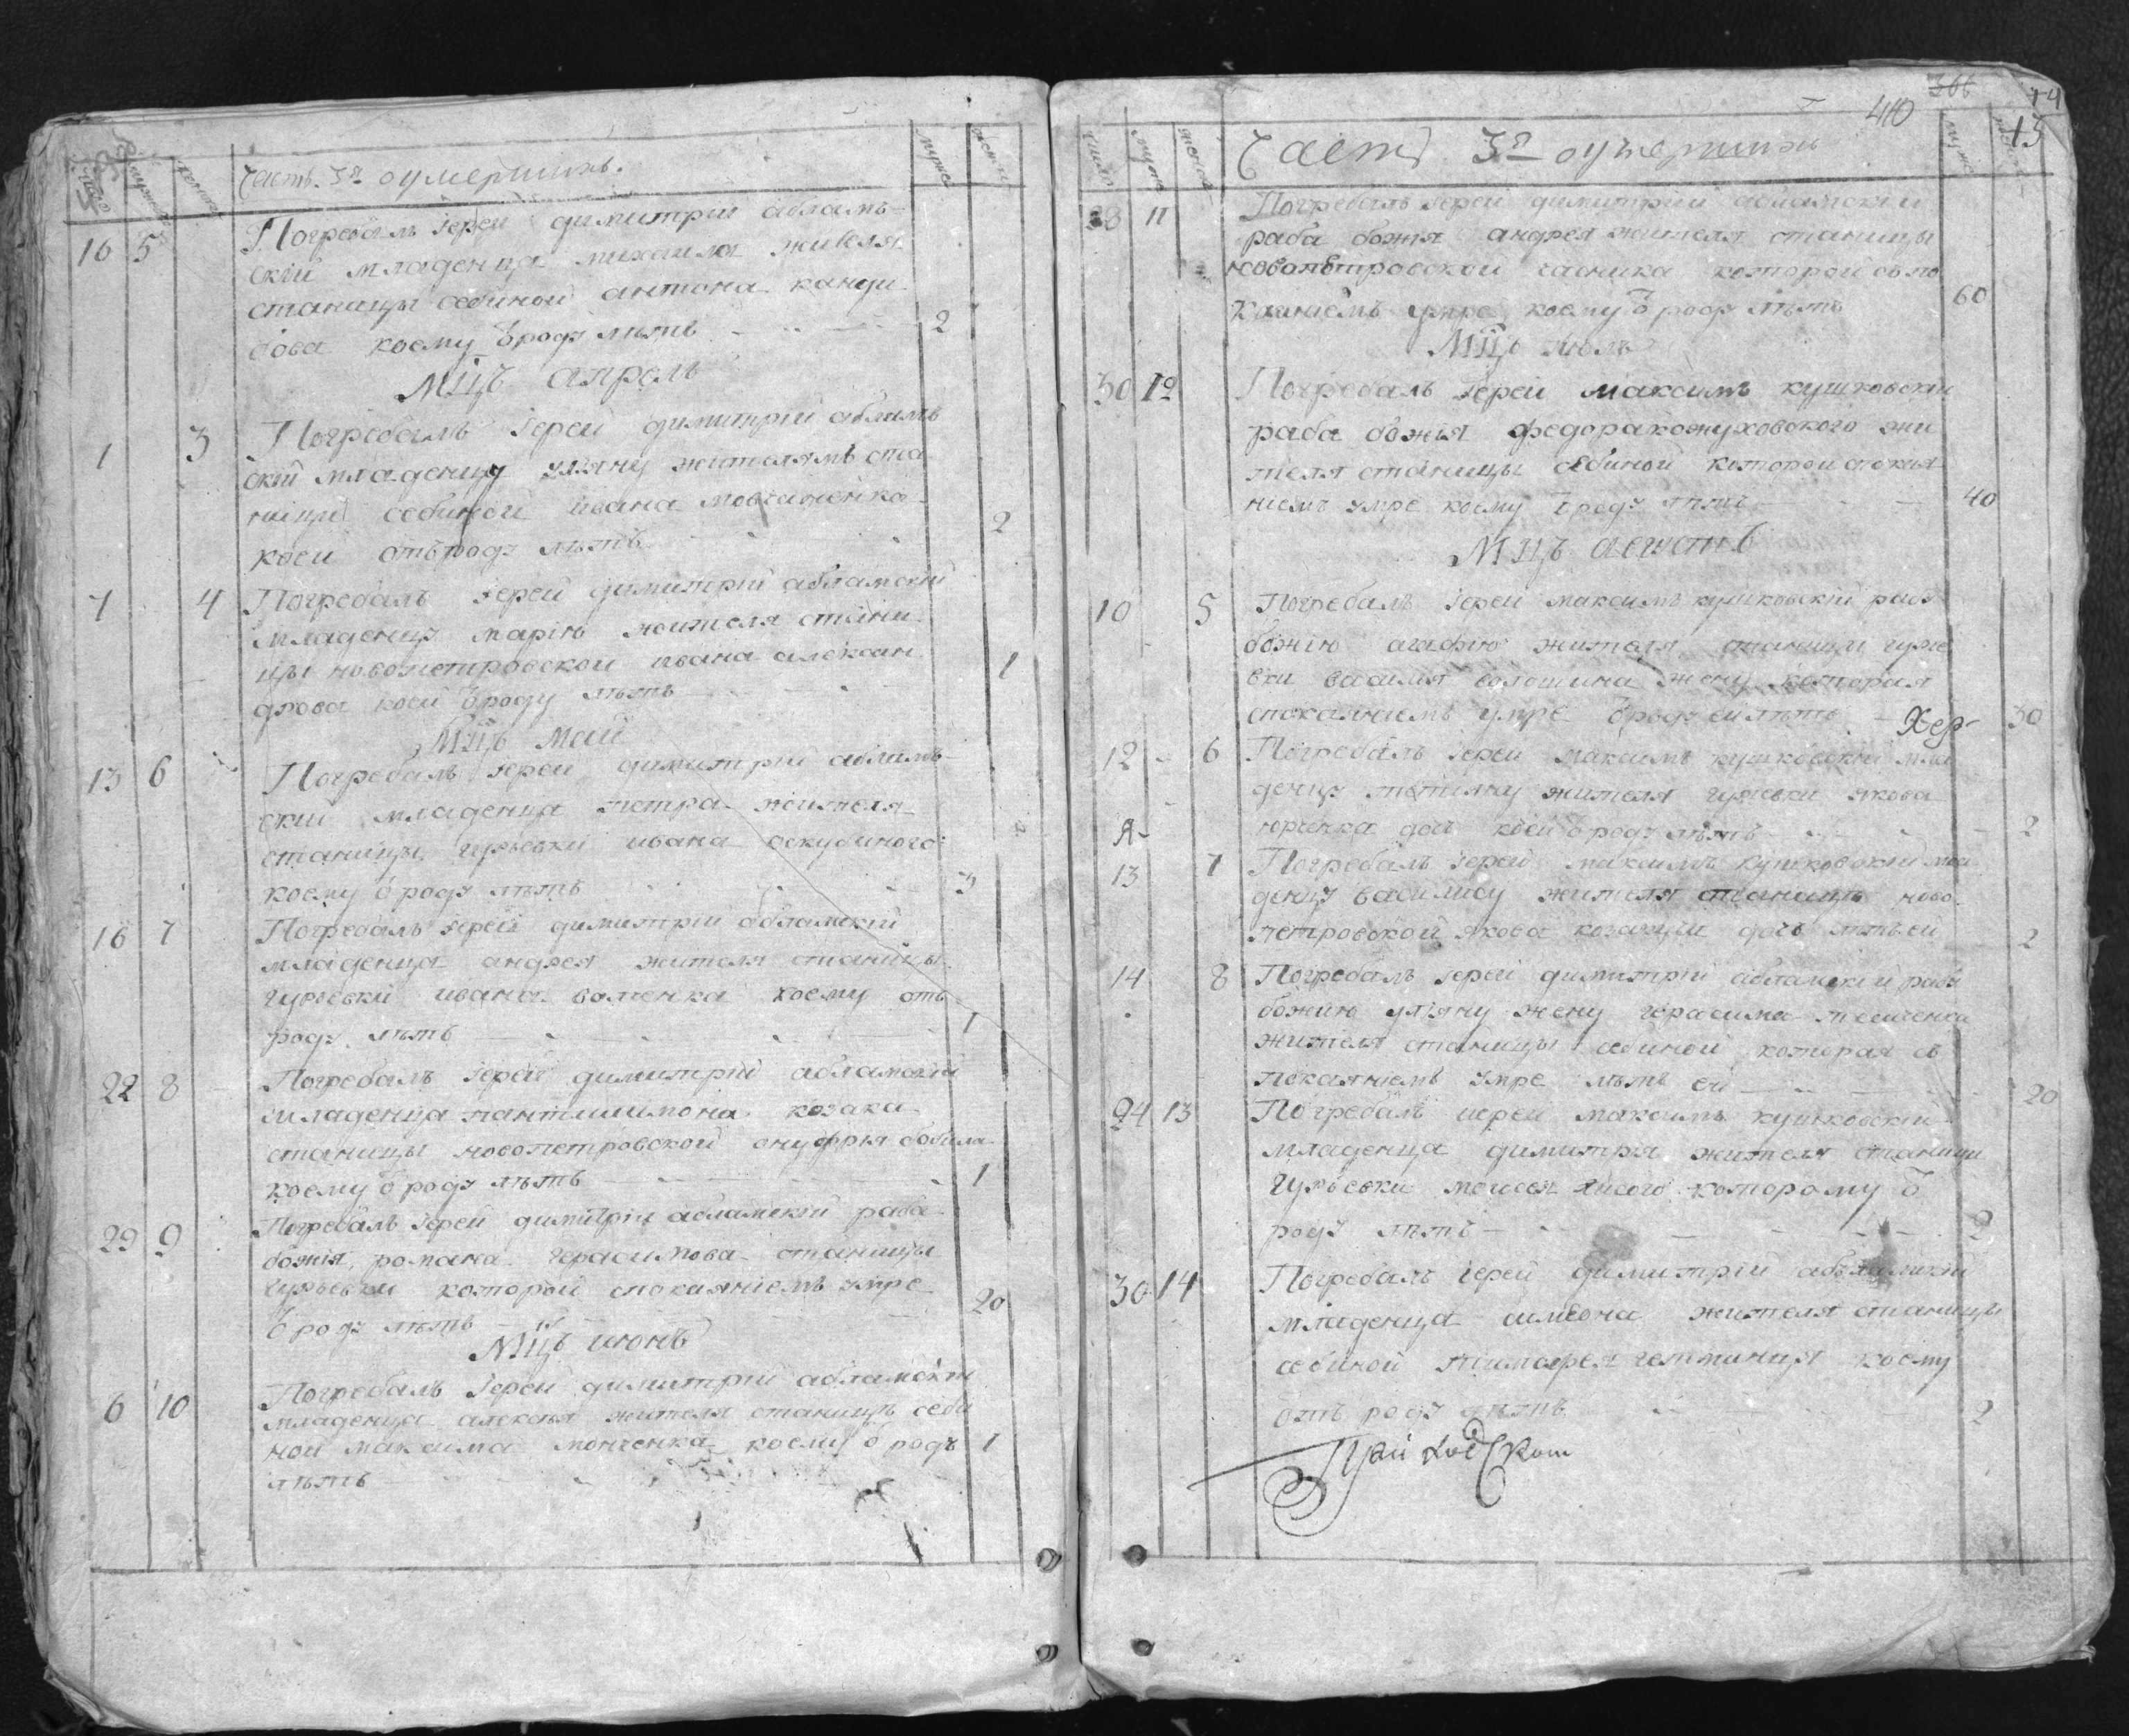 Часть 3я оумершихъ.
16 5 Погребалъ Іерей димитрій абламъ-
скій младенца михаила жителя
станицы себиной антона
коему Ѿроду лѣтъ 2
Мцъ апрель
1 3 Погребалъ Іерей димитрій абламъ
скій младенцу уляну жителямъ ста
ницы себиной ивана
коей отъроду лѣтъ 2
7 4 Погребалъ Іерей димитрій абламскій
младенцу марію жителя стани
цы новопетровской ивана алексан
дрова коей Ѿроду лѣтъ 1
Мцъ май
13 6 Погребалъ Іерей димитрій абламъ-
скій младенца петра жителя
станицы гурьевки ивана
коему Ѿ роду лѣтъ 3
16 7 Погребалъ Іерей димитрій абламскій
младенца андрея жителя станицы
гурьевки ивана коему отъ
роду лѣтъ 1
22 8 Погребалъ Іерей димитрій абламскій
младенца пантилимона козака
станицы новопетровской онуфрія
коему Ѿ роду лѣтъ 1
29 9 Погребалъ Іерей димитрій абламскій раба
божія романа герасимова станицы
гурьевки который спокаяніемъ умре
Ѿ роду лѣтъ 20
Мцъ июнь
6 10 Погребалъ Іерей димитрій абламскій
младенца алексея жителя станицъ себи
ной максима коему Ѿ родъ 1
лѣтъ
410
366
14
15
число муж женск
Часть 3я оумершихъ
28 11 Погребалъ Іерей димитрій абламскій
раба божія андрея жителя станицы
новопетровской которой съ по
каяніемъ умре коему Ѿ роду лѣтъ 60
Мцъ июль
30 12 Погребалъ Іерей максимъ кушковскій
раба божія федора кожуховского жи
теля станицы себиной которой спокая
ніемъ умре коему Ѿроду лѣтъ 40
Мцъ августъ
10 5 Погребалъ Іерей максимъ кушковскій рабу
божію агафію жителя станицы гурье
вки василия волошина жену которая
спокаяніемъ умре Ѿроду ей лѣтъ Хер- 30
12 6 Погребалъ Іерей максимъ кушковскій мла
денцу жителя гурьевки якова
юрченка дочь коей Ѿ роду лѣтъ 2
Я-
13 7 Погребалъ Іерей максимъ кушковскій мла
денцу василису жителя станицы ново
петровской якова дочь лѣтъ ей 2
14 8 Погребалъ Іерей димитрій абламскій рабу
божию уляну жену герасима
жителя станицы себиной которая съ
покаяніемъ умре лѣтъ ей 20
24 13 Погребалъ иерей максимъ кушковскій
младенца димитрія жителя станицы
Гурьевки моисея лисого которому Ѿ
роду лѣтъ 2
30 14 Погребалъ Іерей димитрій абламскій
младенца симеона жителя станицы
себиной тимофея коему
отъ роду лѣтъ 2